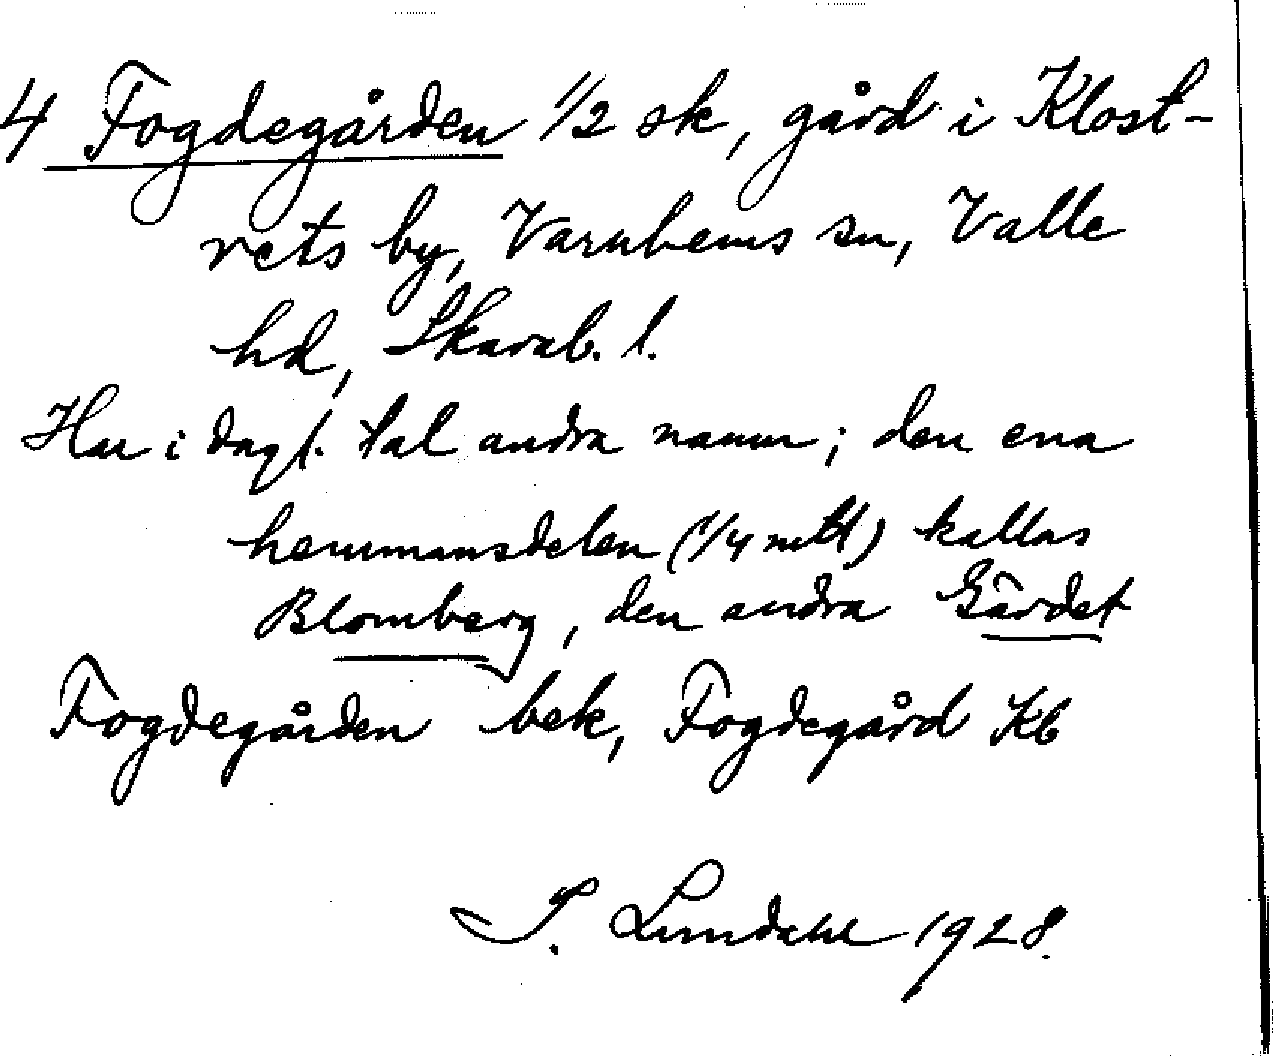 4 Fogdegården 1/2 sk, gård i Klost-
rets by, Varnhems sn, Valle
hd, Skarab. l.
Har i dagl. tal andra namn; den ena
hemmansdelen (1/4 mtl) kallas
Blomberg, den andra Gärdet
Fogdegården bek, Fogdegård Kb
I. Lundahl 1928.